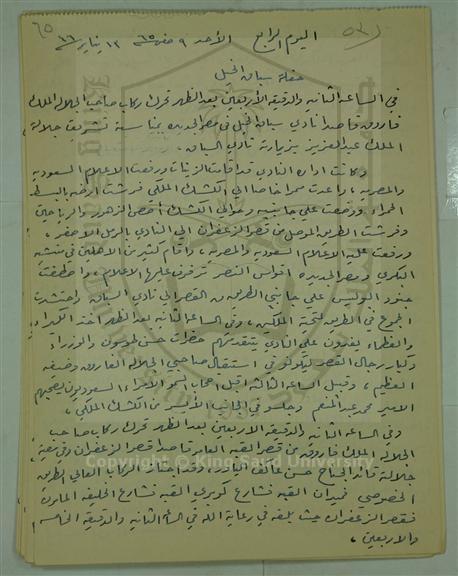 ٦٥
اليوم الرابع الأحد ٩ صفر ٦٥ ١٣ يناير ٤٦
حفلة سباق الخيل
في الساعة الثانية والدقيقة الأربعين بعد الظهر تحرك ركاب صاحب الجلالة الملك
فاروق قاصدا نادي سباق الخيل في مصر الجديدة بمناسبة تشريف جلالة
الملك عبدالعزيز بزيارة نادي السباق .
وكانت ادارة النادي قد اقامت الزينات ورفعت الاعلام السعودية
والمصرية ، واعدت ممرا خاصا الى الكشك الملكي فرشت ارضه بالبسط
الحمراء ووضعت على جانبيه وحوالي الكشك أصص الزهور والرياحين
وفرشت الطريق الموصل من قصر الزعفران الى النادي بالرمل الاصفر ،
ورفعت عليه الاعلام السعودية والمصرية ، واقام كثير من الاهلين في منشية
البكري ومصر الجديدة اقواس النصر ترفرف عليها الاعلام ، واصطفت
جنود البوليس على جانبي الطريق من القصر الى نادي السباق واحتشدت
الجموع في الطريق لتحية الملكين ، وفي الساعة الثانية بعد الظهر اخذ الكبراء
والعظماء يفدون على النادي يتقدمهم حضرات والوزراء
وكبار رجال القصر ليكونوا في استقبال صاحبي الجلالة الفاروق وضيفه
العظيم ، وقبيل الساعة الثالثة اقبل اصحاب السمو الأمراء السعوديون يصحبهم
الامير محمد عبدالمنعم وجلسو في الجانب الأيسر من الكشك الملكي ،
وفي الساعة الثانية والدقيقة الاربعين بعد الظهر تحرك ركاب صاحب
الجلالة الملك فاروق من قصر القبة العامر قاصدا قصر الزعفران وفي معية
جلالة قائد الجناح حسن عاكف ، وقد اجتاز الركاب العالي الطريق
الخصوصي فميدان القبة فشارع كوبري القبة فشارع الخليفة المأمون
فقصر الزعفران حيث بلغه في رعاية الله في الساعة الثانية والدقيقة الخامسة
والاربعين ،
Copyright © King Saud University